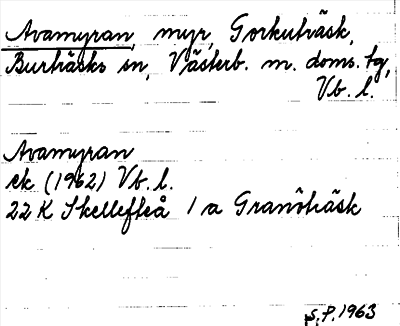 Avamyran, myr, Gorkuträsk,
Burträsks sn, Västerb. m. doms. tg,
Vb. l.
Avamyran
ek (1962) Vb. l.
22 K Skellefteå 1 a Granöträsk
S.P. 1963